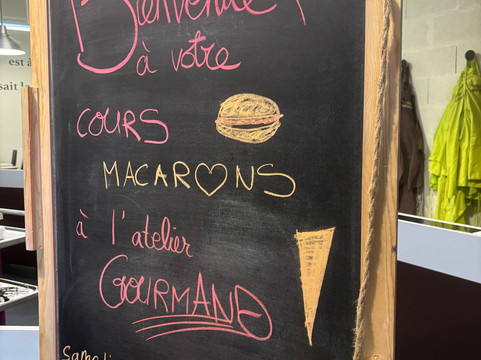 Bienvenue !
à votre
COURS
MACAR♡NS
à l'atelier
GOURMAND
est à
sait l